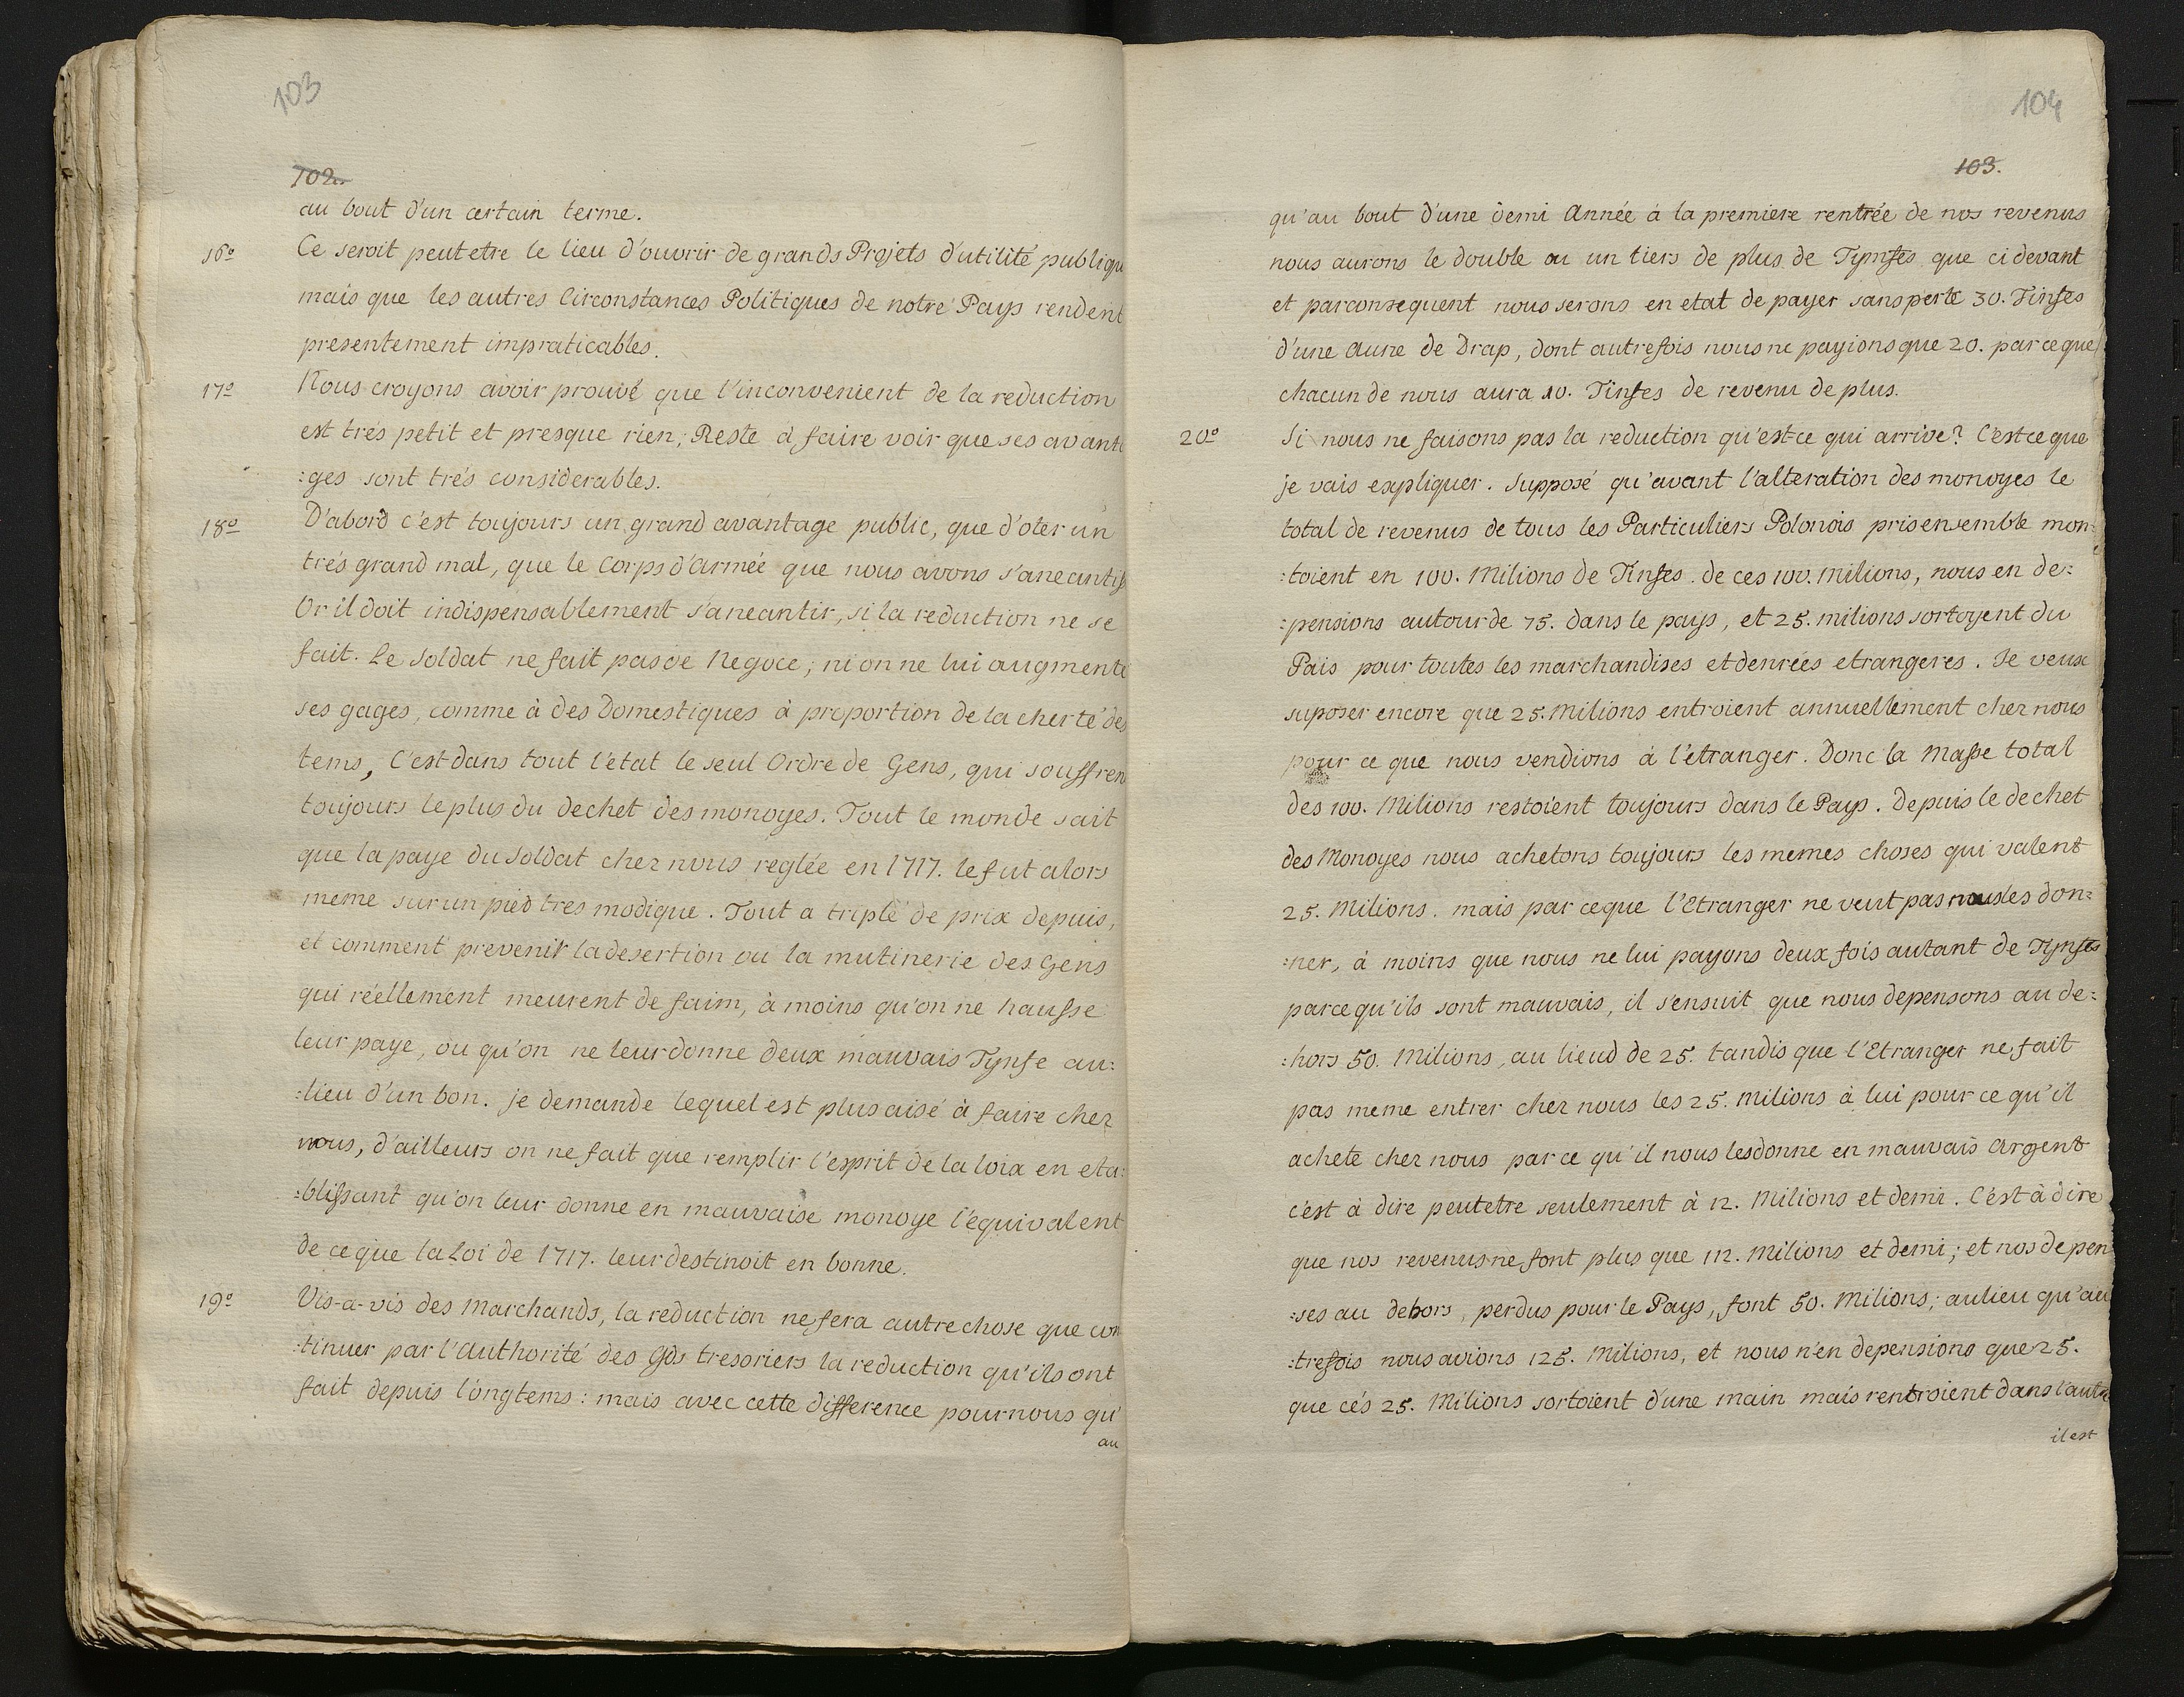 103
102.
au bout d'un certain terme.
16º Ce seroit peutetre le lieu d'ouvrir de grands Projets d'utilité publiqu
mais que les autres Circonstances Politiques de notre Pays rendent
presentement impraticables.
17º Nous croyons avoir prouvé que l'inconvenient de la reduction
est trés petit et presque rien; Reste à faire voir que ses avant
:ges sont trés considerables.
18º D'abord c'est toujours un grand avantage public, que d'oter un
trés grand mal, que le Corps d'armée que nous avons s'aneantiss
Or il doit indispensablement s'aneantir, si la reduction ne se
fait. Le Soldat ne fait pas de Negoce; ni on ne lui augmente
ses gages, comme à des Domestiques à proportion de la cherté des
tems, C'est dans tout l'état le seul Ordre de Gens, qui souffren
toujours le plus du dechet des monoyes. Tout le monde sait
que la paye du Soldat chez nous reglée en 1717. le fut alors
meme sur un pied tres modique. Tout a triplé de prix depuis,
et comment prevenir la desertion ou la mutinerie des Gens
qui réellement meurent de faim, à moins qu'on ne hausse
leur paye, ou qu'on ne leur donne deux mauvais Tynfe au:
:lieu d'un bon. je demande lequel est plus aisé à faire chez
nous, d'ailleurs on ne fait que remplir l'esprit de la loix en eta:
:blissant qu'on leur donne en mauvaise monoye l'equivalent
de ce que la Loi de 1717. leur destinoit en bonne.
19º Vis-a-vis des Marchands, la reduction ne sera autre chose que con
:tinuer par l'Authorité des Gds tresoriers la reduction qu'ils ont
fait depuis longtems: mais avec cette difference pour nous qu'
au
104
103.
qu'au bout d'une demi Année à la premiere rentrée de nos revenus
nous aurons le double ou un tiers de plus de Tymfes que ci devant
et parconsequent nous serons en etat de payer sans perte 30. Tinfes
d'une aune de Drap, dont autrefois nous ne payions que 20. parceque
chacun de nous aura 10. Tinfes de revenu de plus.
20º Si nous ne faisons pas la reduction qu'est ce qui arrive? C'est ce que
je vais expliquer. Supposé qu'avant l'alteration des monoyes le
total de revenus de tous les Particuliers Polonois pris ensemble mon:
:toient en 100. Milions de Tinfes. de ces 100. milions, nous en de:
:pensions autour de 75. dans le pays, et 25. milions sortoyent du
Païs pour toutes les marchandises et denrées etrangeres. Je veux
suposer encore que 25. Milions entroient annuellement chez nous
pour ce que nous vendions à l'etranger. Donc la Masse total
des 100. Milions restoient toujours dans le Pays. Depuis le dechet
des Monoyes nous achetons toujours les memes choses qui valent
25. Milions. mais par ceque l'Etranger ne veut pas nous les don:
:ner, à moins que nous ne lui payons deux fois autant de Tymfes
parcequ'ils sont mauvais, il s'ensuit que nous depensons au de:
:hors 50. Milions, au lieud de 25. tandis que l'Etranger ne fait
pas meme entrer chez nous les 25. milions à lui pour ce qu'il
achete chez nous par ce qu'il nous les donne en mauvais Argent
c'est à dire peutetre seulement à 12. Milions et demi. C'est à dire
que nos revenus ne font plus que 112. Milions et demi; et nos depen
:ses au dehors, perdus pour le Pays, font 50. Milions; aulieu qu'au
:trefois nous avions 125. Milions, et nous n'en depensions que 25.
que cés 25. Milions sortoient d'une main mais rentroient dans l'autre
il est